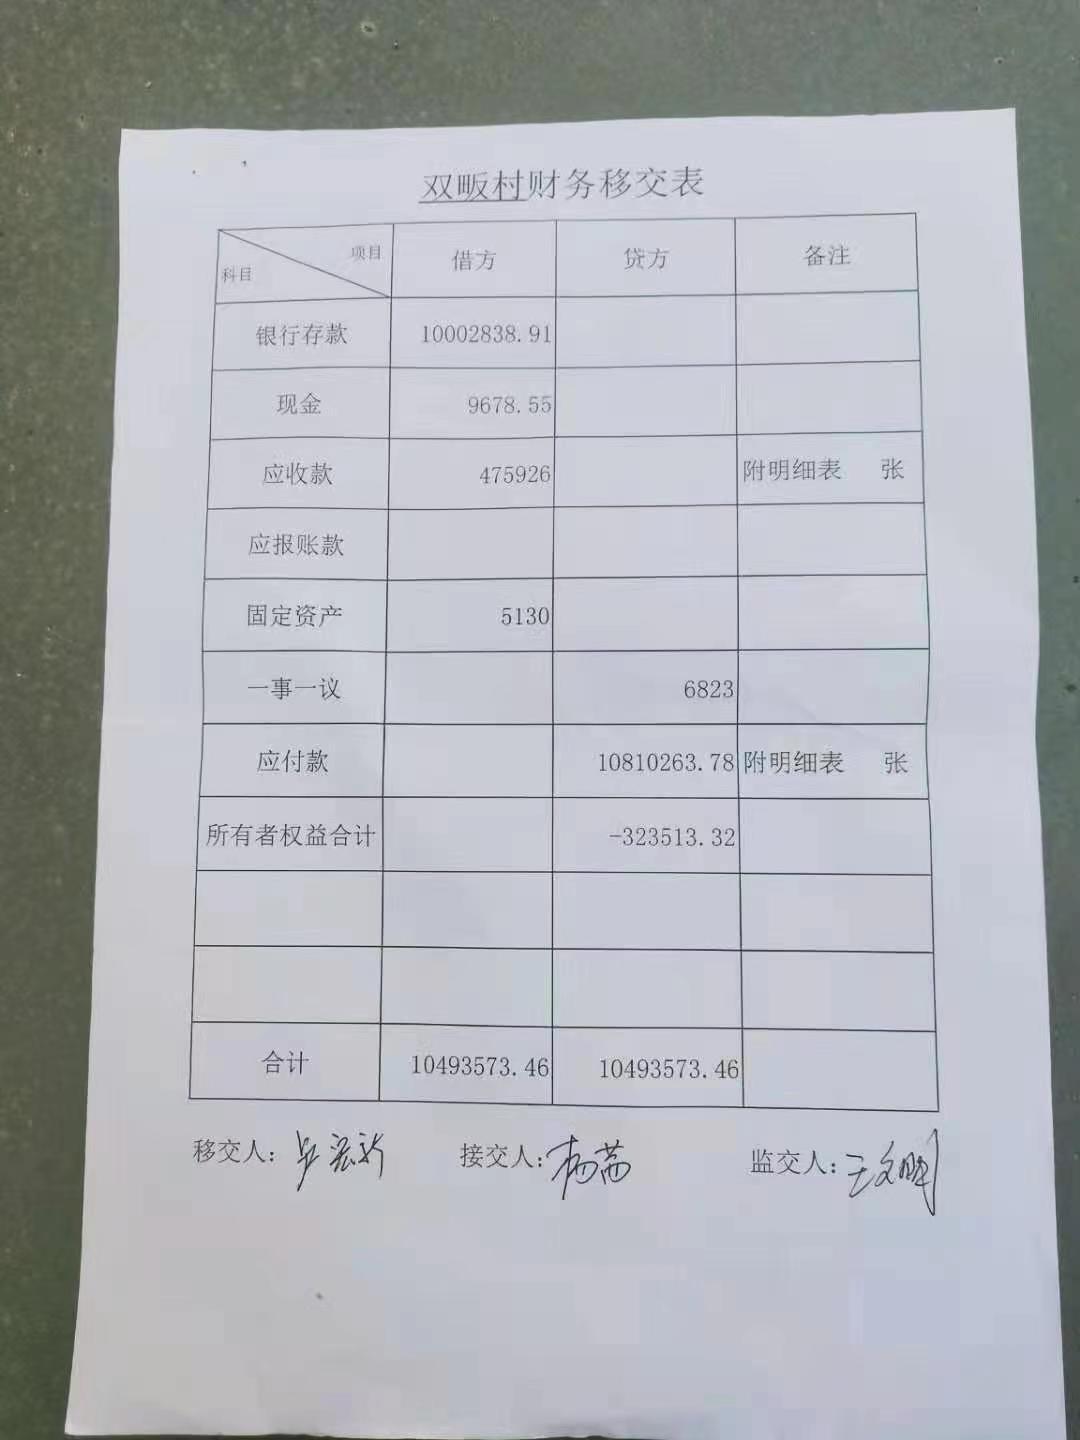 双畈村财务移交表
项目 科目 借方 贷方 备注
银行存款 10002838.91
现金 9678.55
应收款 475926 附明细表 张
应报账款
固定资产 5130
一事一议 6823
应付款 10810263.78 附明细表 张
所有者权益合计 -323513.32
合计 10493573.46 10493573.46
移交人： 接交人：杨茜 监交人：王文明